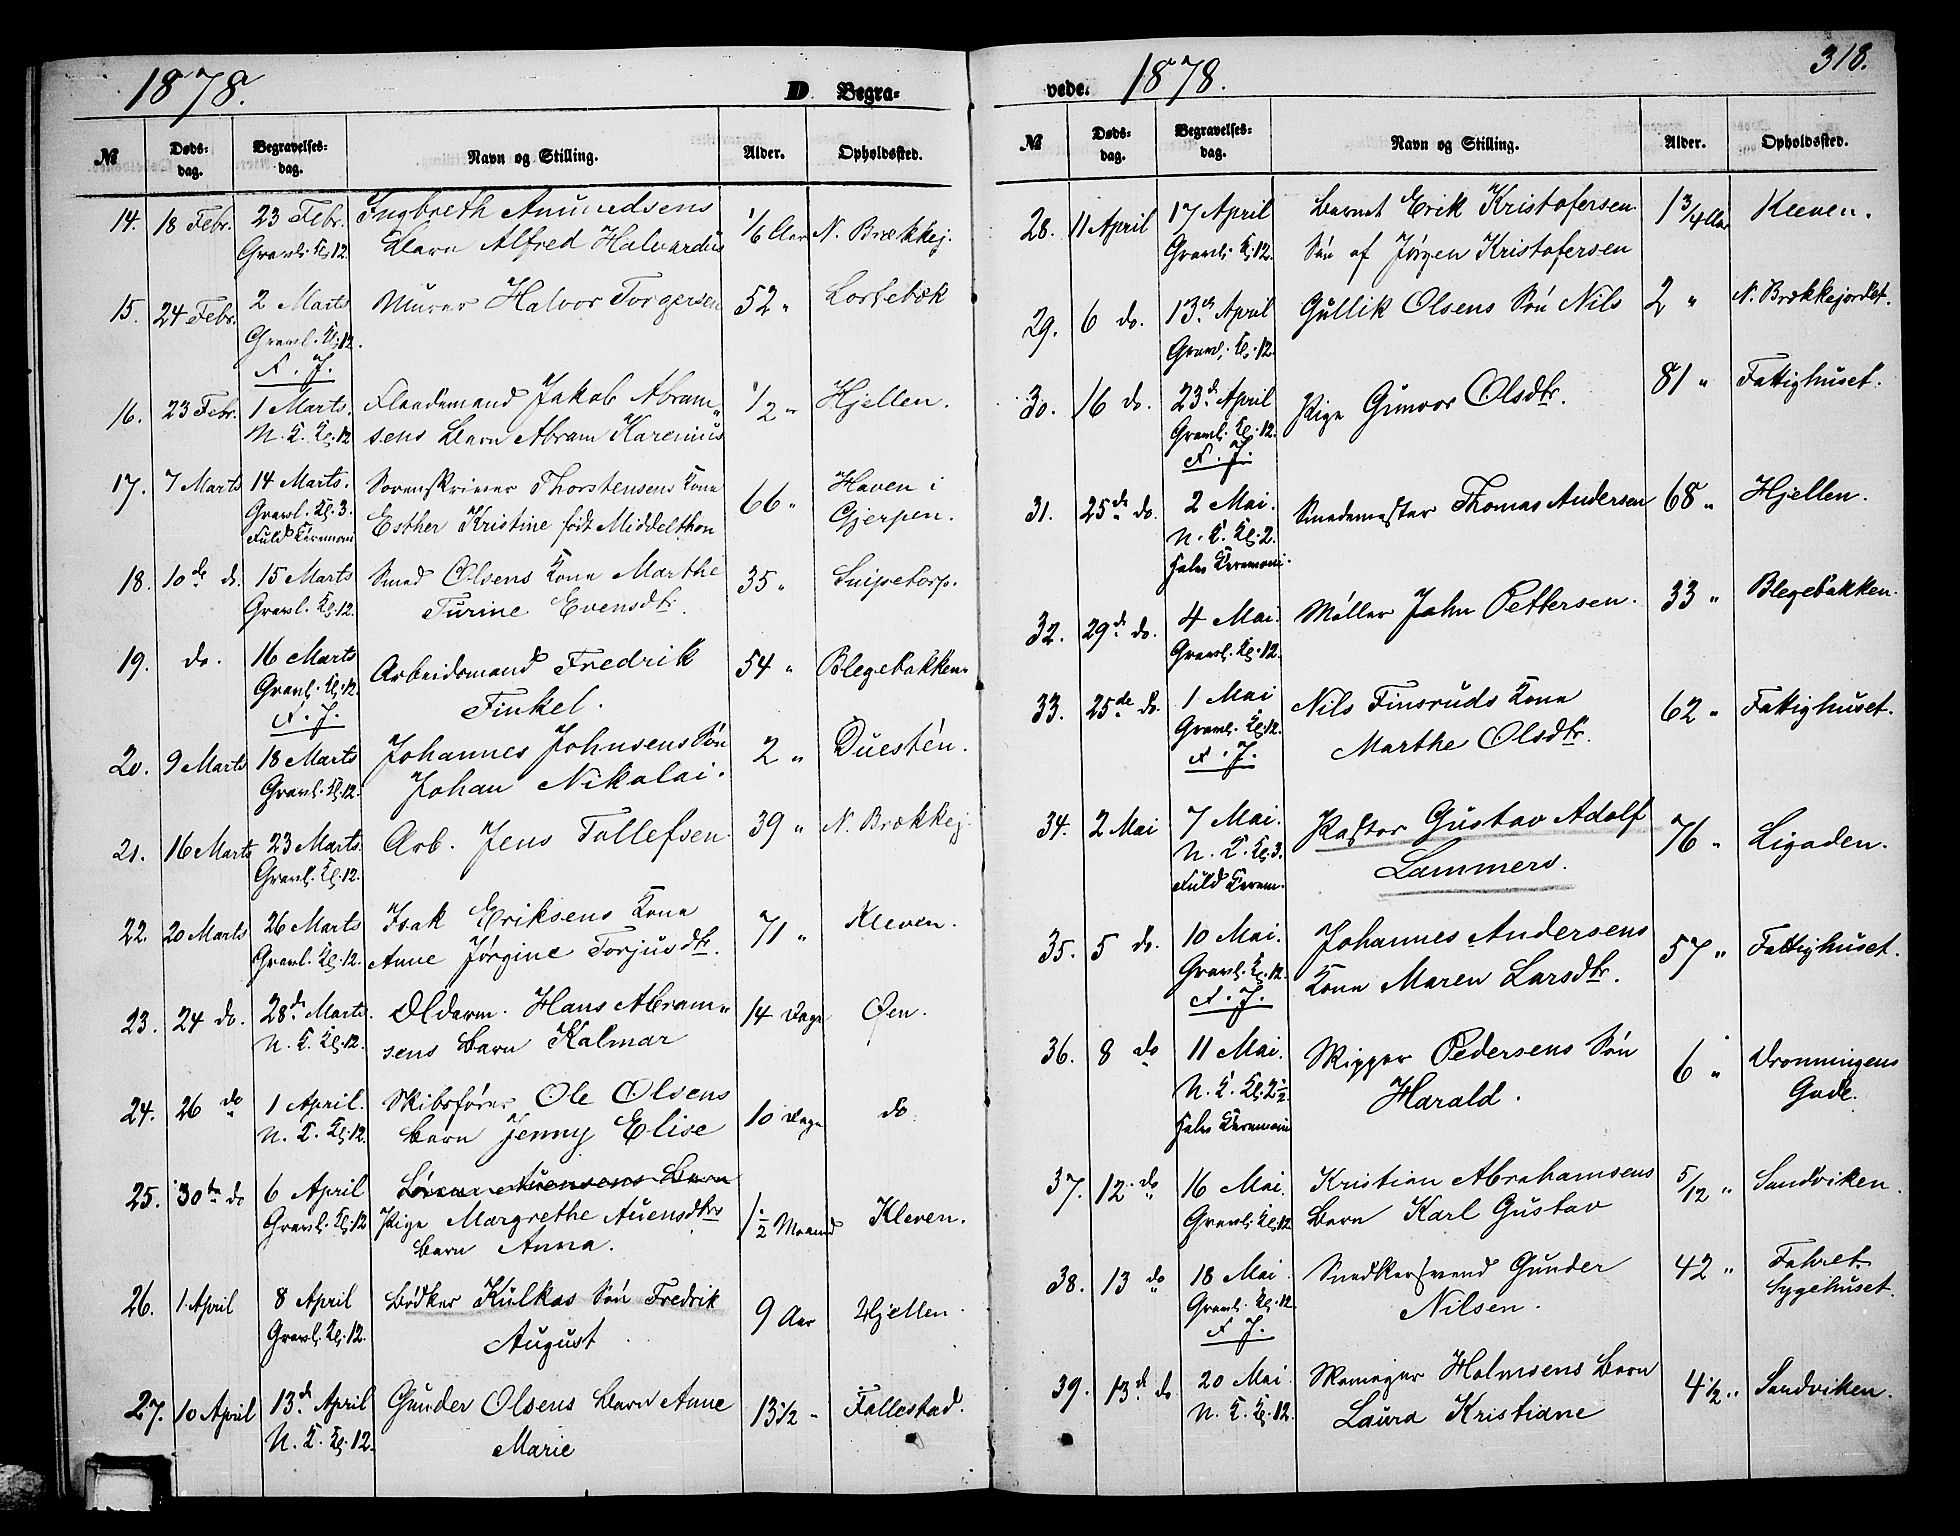 1878.
D. Begra-
№
Døds-
dag.
Begravelses-
dag.
Navn og Stilling.
Alder.
Opholdssted.
14. 18 Febr. 23 Febr. Ingbreth Amundsens 1/6 Aar N. Brækkej.
Gravl. Kl. 12. Barn Alfred Halvardus
15. 24 Febr. 2 Marts Murer Halvor Torgersen 52 " Lortebæk
Gravl. Kl. 12.
F. J.
16. 23 Febr. 1 Marts. Flaademand Jakob Abram- 1/2 " Hjellen.
N. K. Kl. 12 sens Barn Abram Karenius
17. 7 Marts 14 Marts. Sorenskriver Thorstensens Kone 66 " Haven i
Gravl. Kl. 3. Esther Kristine født Middelthon Gjerpen.
Fuld Ceremoni
18. 10de do. 15 Marts Smed Olsens Kone Marthe 35 " Snipetorp.
Gravl. Kl. 12. Turine Evensdtr.
19. do. 16 Marts Arbeidsmand Fredrik 54 " Blegebakken.
Gravl. Kl. 12. Finkel.
F. J.
20. 9 Marts 18 Marts Johannes Johnsens Søn 2 " Duestén.
Gravl. Kl. 12. Johan Nikolai.
21. 16 Marts 23 Marts Arb. Jens Tollefsen 39 " N. Brækkej.
Gravl. Kl. 12.
22. 20 Marts 26 Marts Isak Eriksens Kone 71 " Kleven.
Gravl. Kl. 12. Anne Jørgine Torjusdtr.
23. 24 do. 28de Marts Olderm. Hans Abram- 14 Dage Øen.
N. K. Kl. 12. sens Barn Kalmar
24. 26 do 1 April. Skibsfører Ole Olsens 10 Dage do
N. K. Kl. 12. Barn Jenny Elise
25. 30te do 6 April Auensens Barn
Gravl. Kl. 12 Pige Margrethe Auensdtrs 1 1/2 Maaned Kleven.
Barn Anna.
26. 1 April 8 April Bødker Kulkas Søn Fredrik 9 Aar Hjellen.
Gravl. Kl. 12. August
27. 10 April 13de April Gunder Olsens Barn Anne 13 1/2 " Follestad.
N. K. Kl. 12. Marie
vede. 1878. 318.
№
Døds-
dag.
Begravelses-
dag.
Navn og Stilling.
Alder.
Opholdssted.
28. 11 April 17 April Barnet Erik Kristofersen 1 3/4 Aar Kleven.
Gravl. Kl. 12. Søn af Jørgen Kristofersen
29. 6 do. 13de April Gullik Olsens Søn Nils 2 " N. Brækkejordet.
Gravl. Kl. 12.
30. 16 do. 23de April Pige Gunvor Olsdtr. 81 " Fattighuset.
Gravl. Kl. 12.
F. J.
31. 25de do. 2 Mai. Smedemester Thomas Andersen 68 " Hjellen.
N. K. Kl. 2.
halv Ceremoni.
32. 29de do. 4 Mai. Møller John Pettersen. 33 " Blegebakken.
Gravl. Kl. 12.
33. 25de do. 1 Mai Nils Finsruds Kone 62 " Fattighuset.
Gravl. Kl. 12. Marthe Olsdtr.
F. J.
34. 2 Mai 7 Mai. Pastor Gustav Adolf 76 " Ligaden.
N. K. Kl. 3. Lammers.
Fuld Cerem.
35. 5 do. 10 Mai. Johannes Andersens 57 " Fattighuset.
Gravl. Kl. 12. Kone Maren Larsdtr.
F. J.
36. 8 do 11 Mai. Skipper Pedersens Søn 6 " Dronningens
N. K. Kl. 2 1/2. Harald. Gade.
halv Ceremoni
37. 12. do 16 Mai. Kristian Abrahamsens 5/12 " Sandviken.
Gravl. Kl. 12 Barn Karl Gustav
38. 13 do 18 Mai. Snedkersvend Gunder 42 " Fahret
Gravl. Kl. 12. Nilsen. Sygehuset.
F. J.
39. 13de do. 20 Mai. Skomager Holmsens Barn 4 1/2 " Sandviken.
N. K. Kl. 12. Laura Kristiane